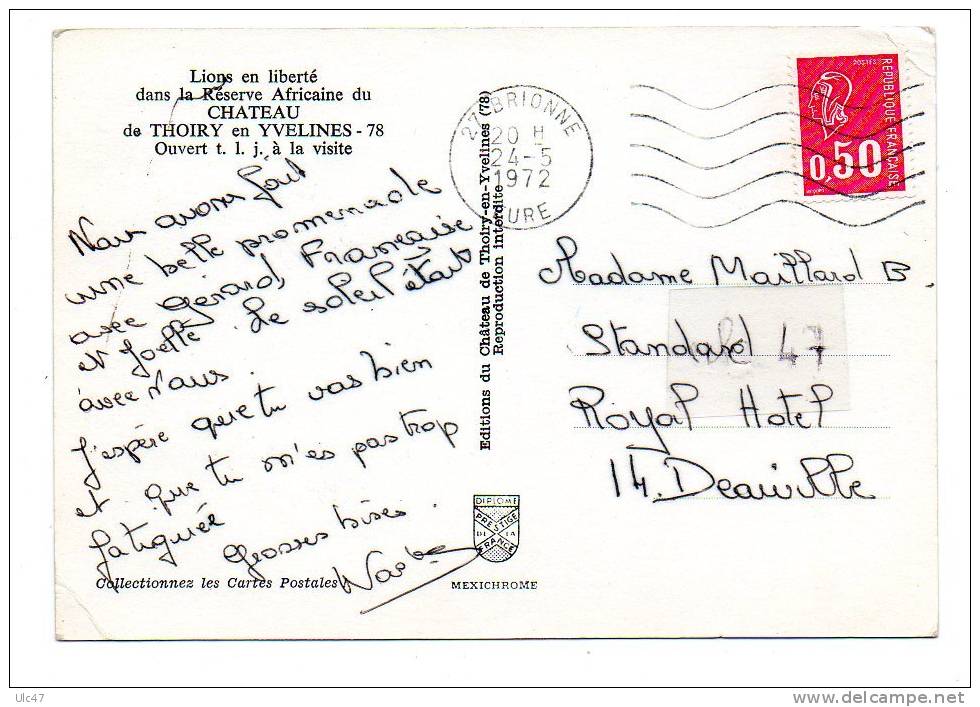 Lions en liberté
dans la Réserve Africaine du
CHATEAU
de THOIRY en YVELINES - 78
Ouvert t. l. j. à la visite
Nous avons fait
une belle promenade
avec Gérard, Françoise
et Joëlle. Le soleil était
avec nous.
J'espère que tu vas bien
et que tu n'es pas trop
fatiguée
Grosses bises.
Collectionnez les Cartes Postales
Editions du Château de Thoiry-en-Yvelines (78)
Reproduction interdite
DIPLOME
PRESTIGE
DE LA
FRANCE
MEXICHROME
27 BRIONNE
20 H
24-5
1972
EURE
POSTES
REPUBLIQUE FRANCAISE
0,50
Madame Maillard B
Standard 47
Royal Hotel
14. Deauville
Ulc47
www.delcampe.net